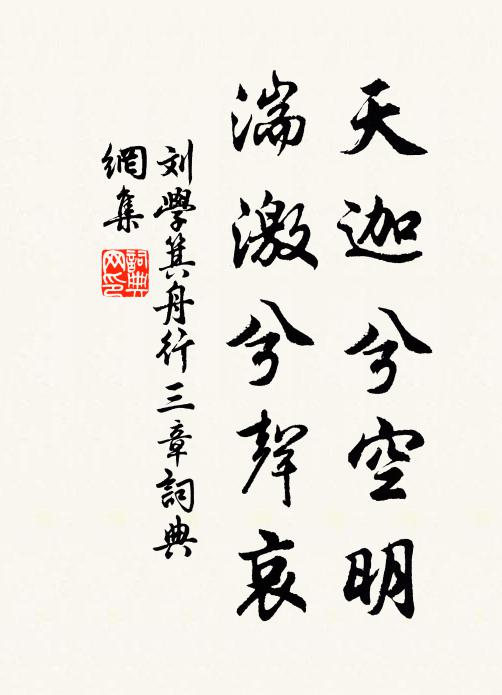 天迦兮空明
湍激兮聲哀
刘學箕舟行三章詞典
網集
詞典
网印